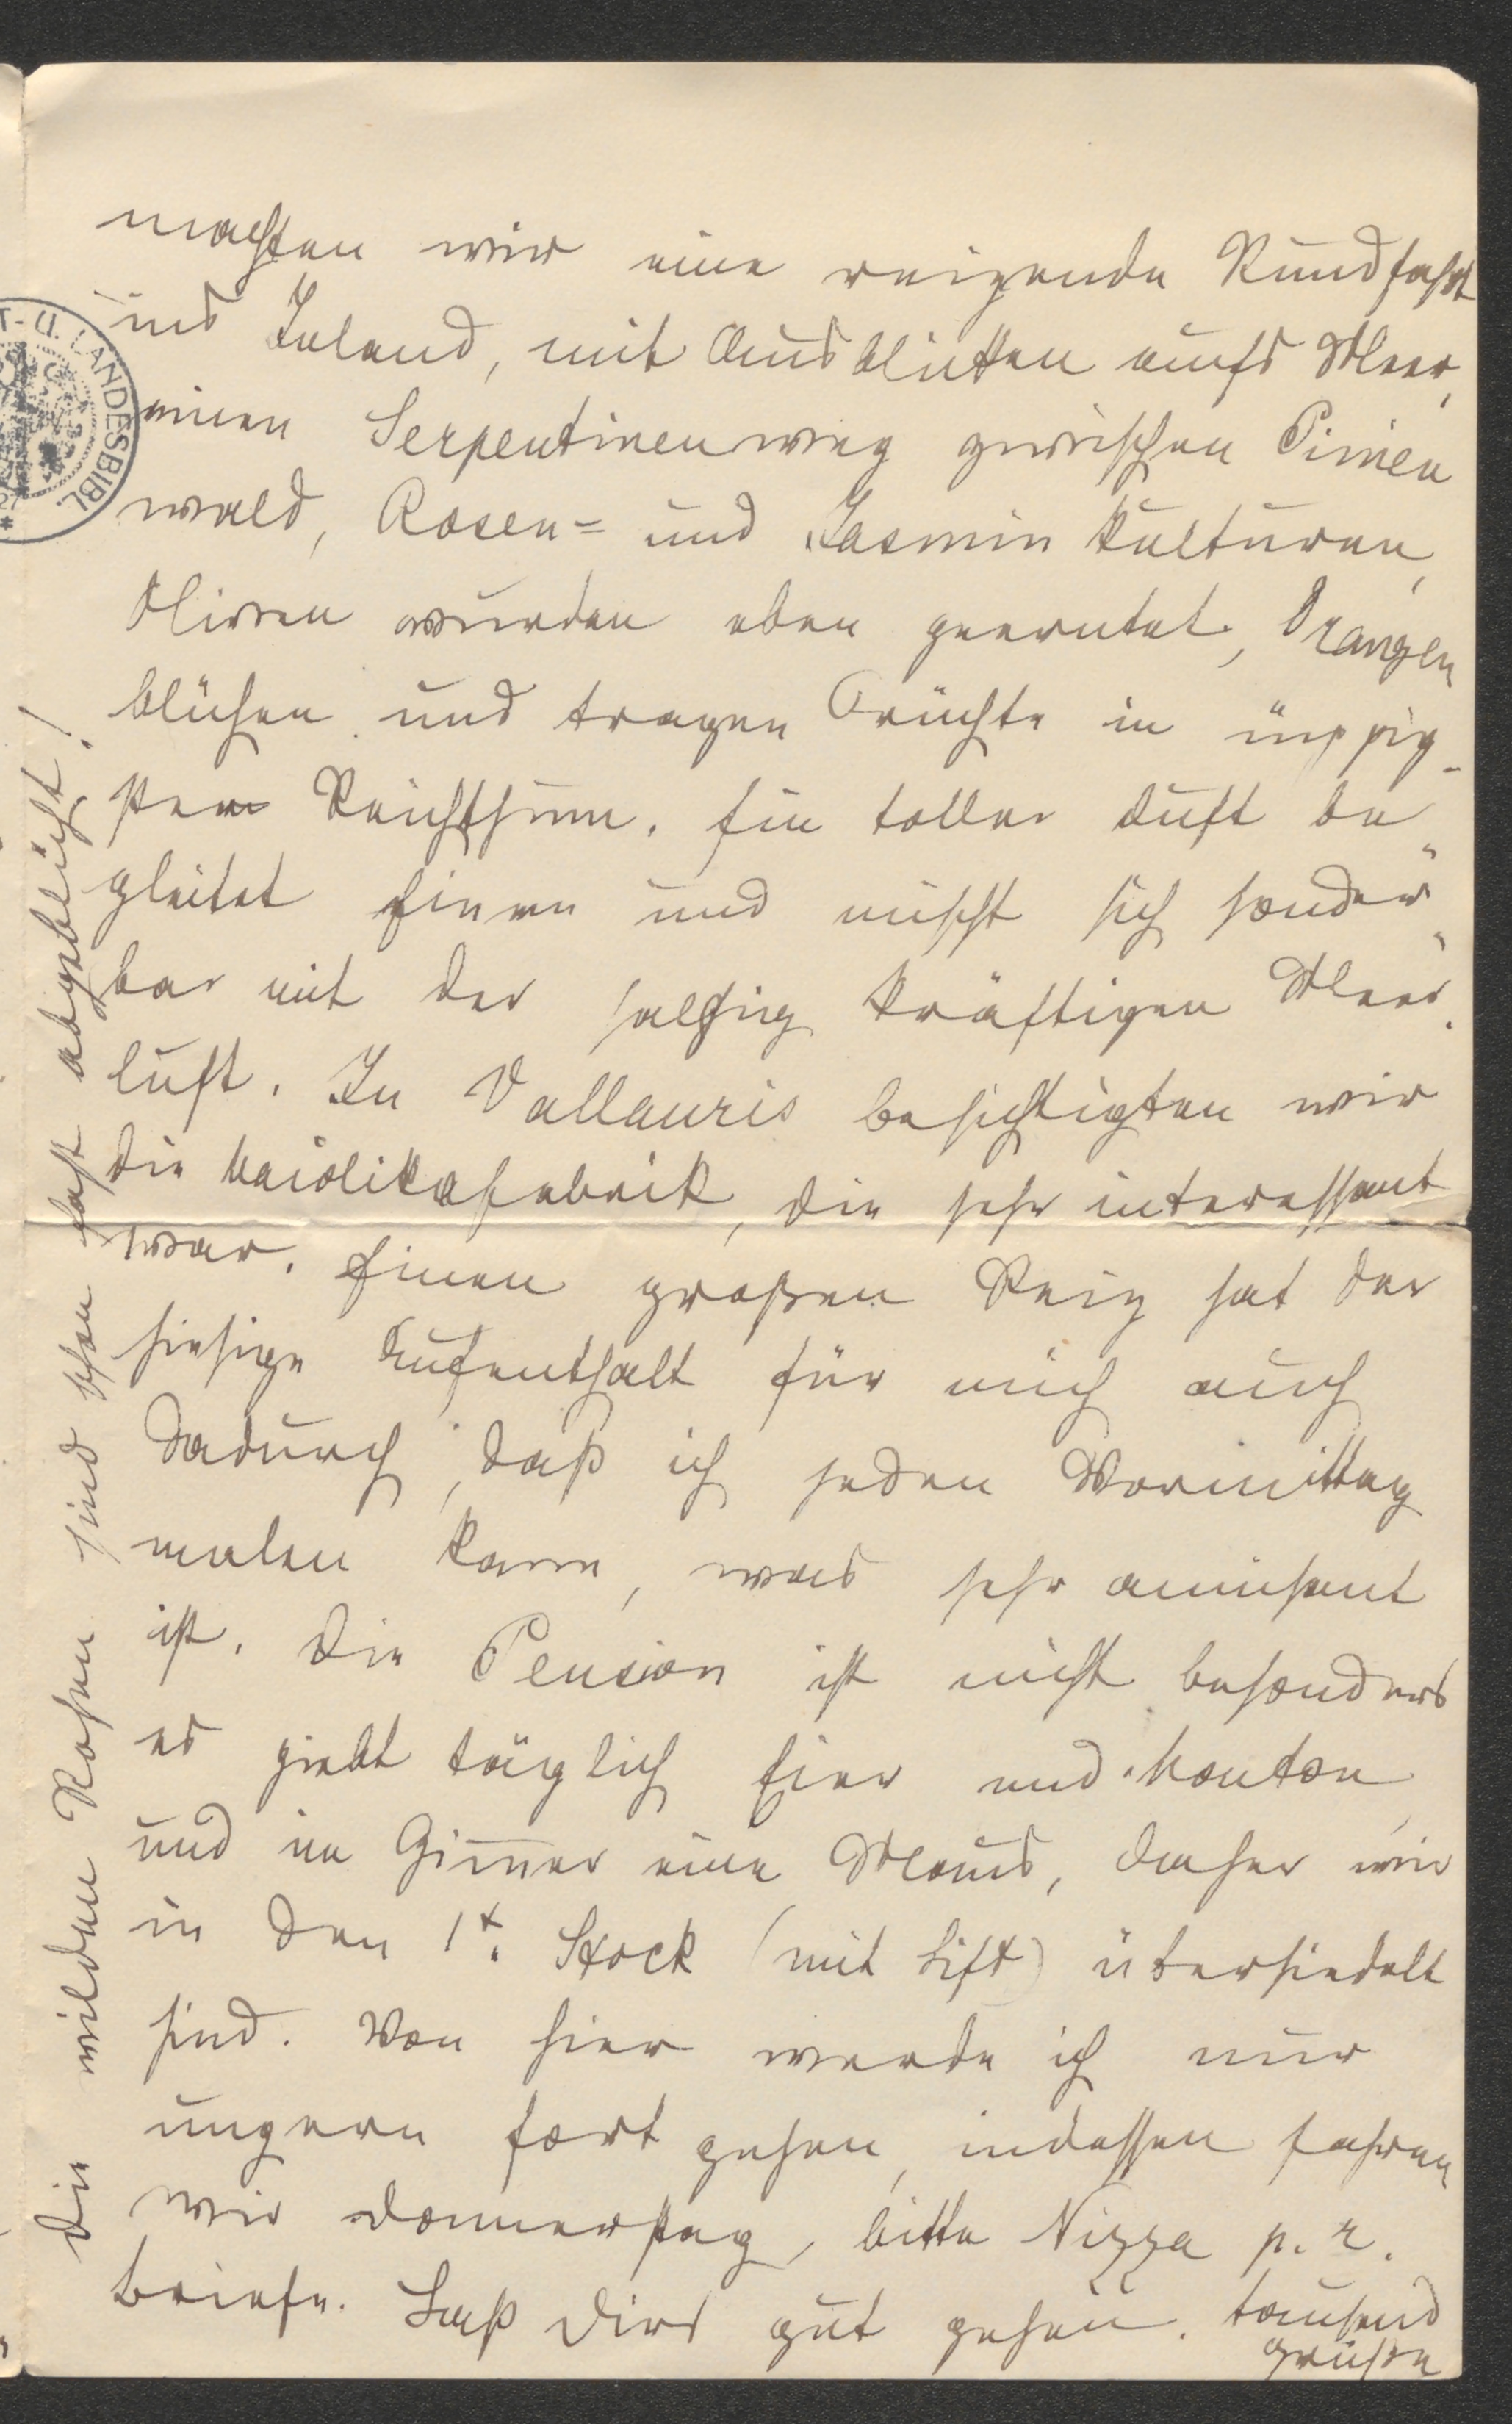 machten wir eine reizende Rundfahrt
ins Inland, mit Ausblicken aufs Meer,
einen Serpentinenweg zwischen Pinien
wald, Rosen= und Jasmin kulturen,
Oliven wurden eben geerntet, Orangen
blühen und tragen Früchte in üppig-
stem Reichthum. Ein toller Duft be
gleitet Einen und mischt sich sonder
bar mit der salzig kräftigen Meer
luft. In Vallauris besichtigten wir
die Maiolikafabrik, die sehr interessant
war. Einen großen Reiz hat der
hiesige Aufenthalt für mich auch
dadurch, daß ich jeden Vormittag
malen kann, was sehr amüsant
ist. Die Pension ist nicht besonders
es giebt täglich Eier und Mouton,
und im Zimmer eine Maus, daher wir
in den 1t. Stock (mit Lift) übersiedelt
sind. Von hier werde ich nur
ungern fort gehen, indessen fahren
wir Donnerstag, bitte Nizza p. r.
Briefe. Laß Dirs gut gehen. tausend
Grüße
Die wilden Rosen sind schon fast abgeblüht!
T- U. LANDESBIBL.